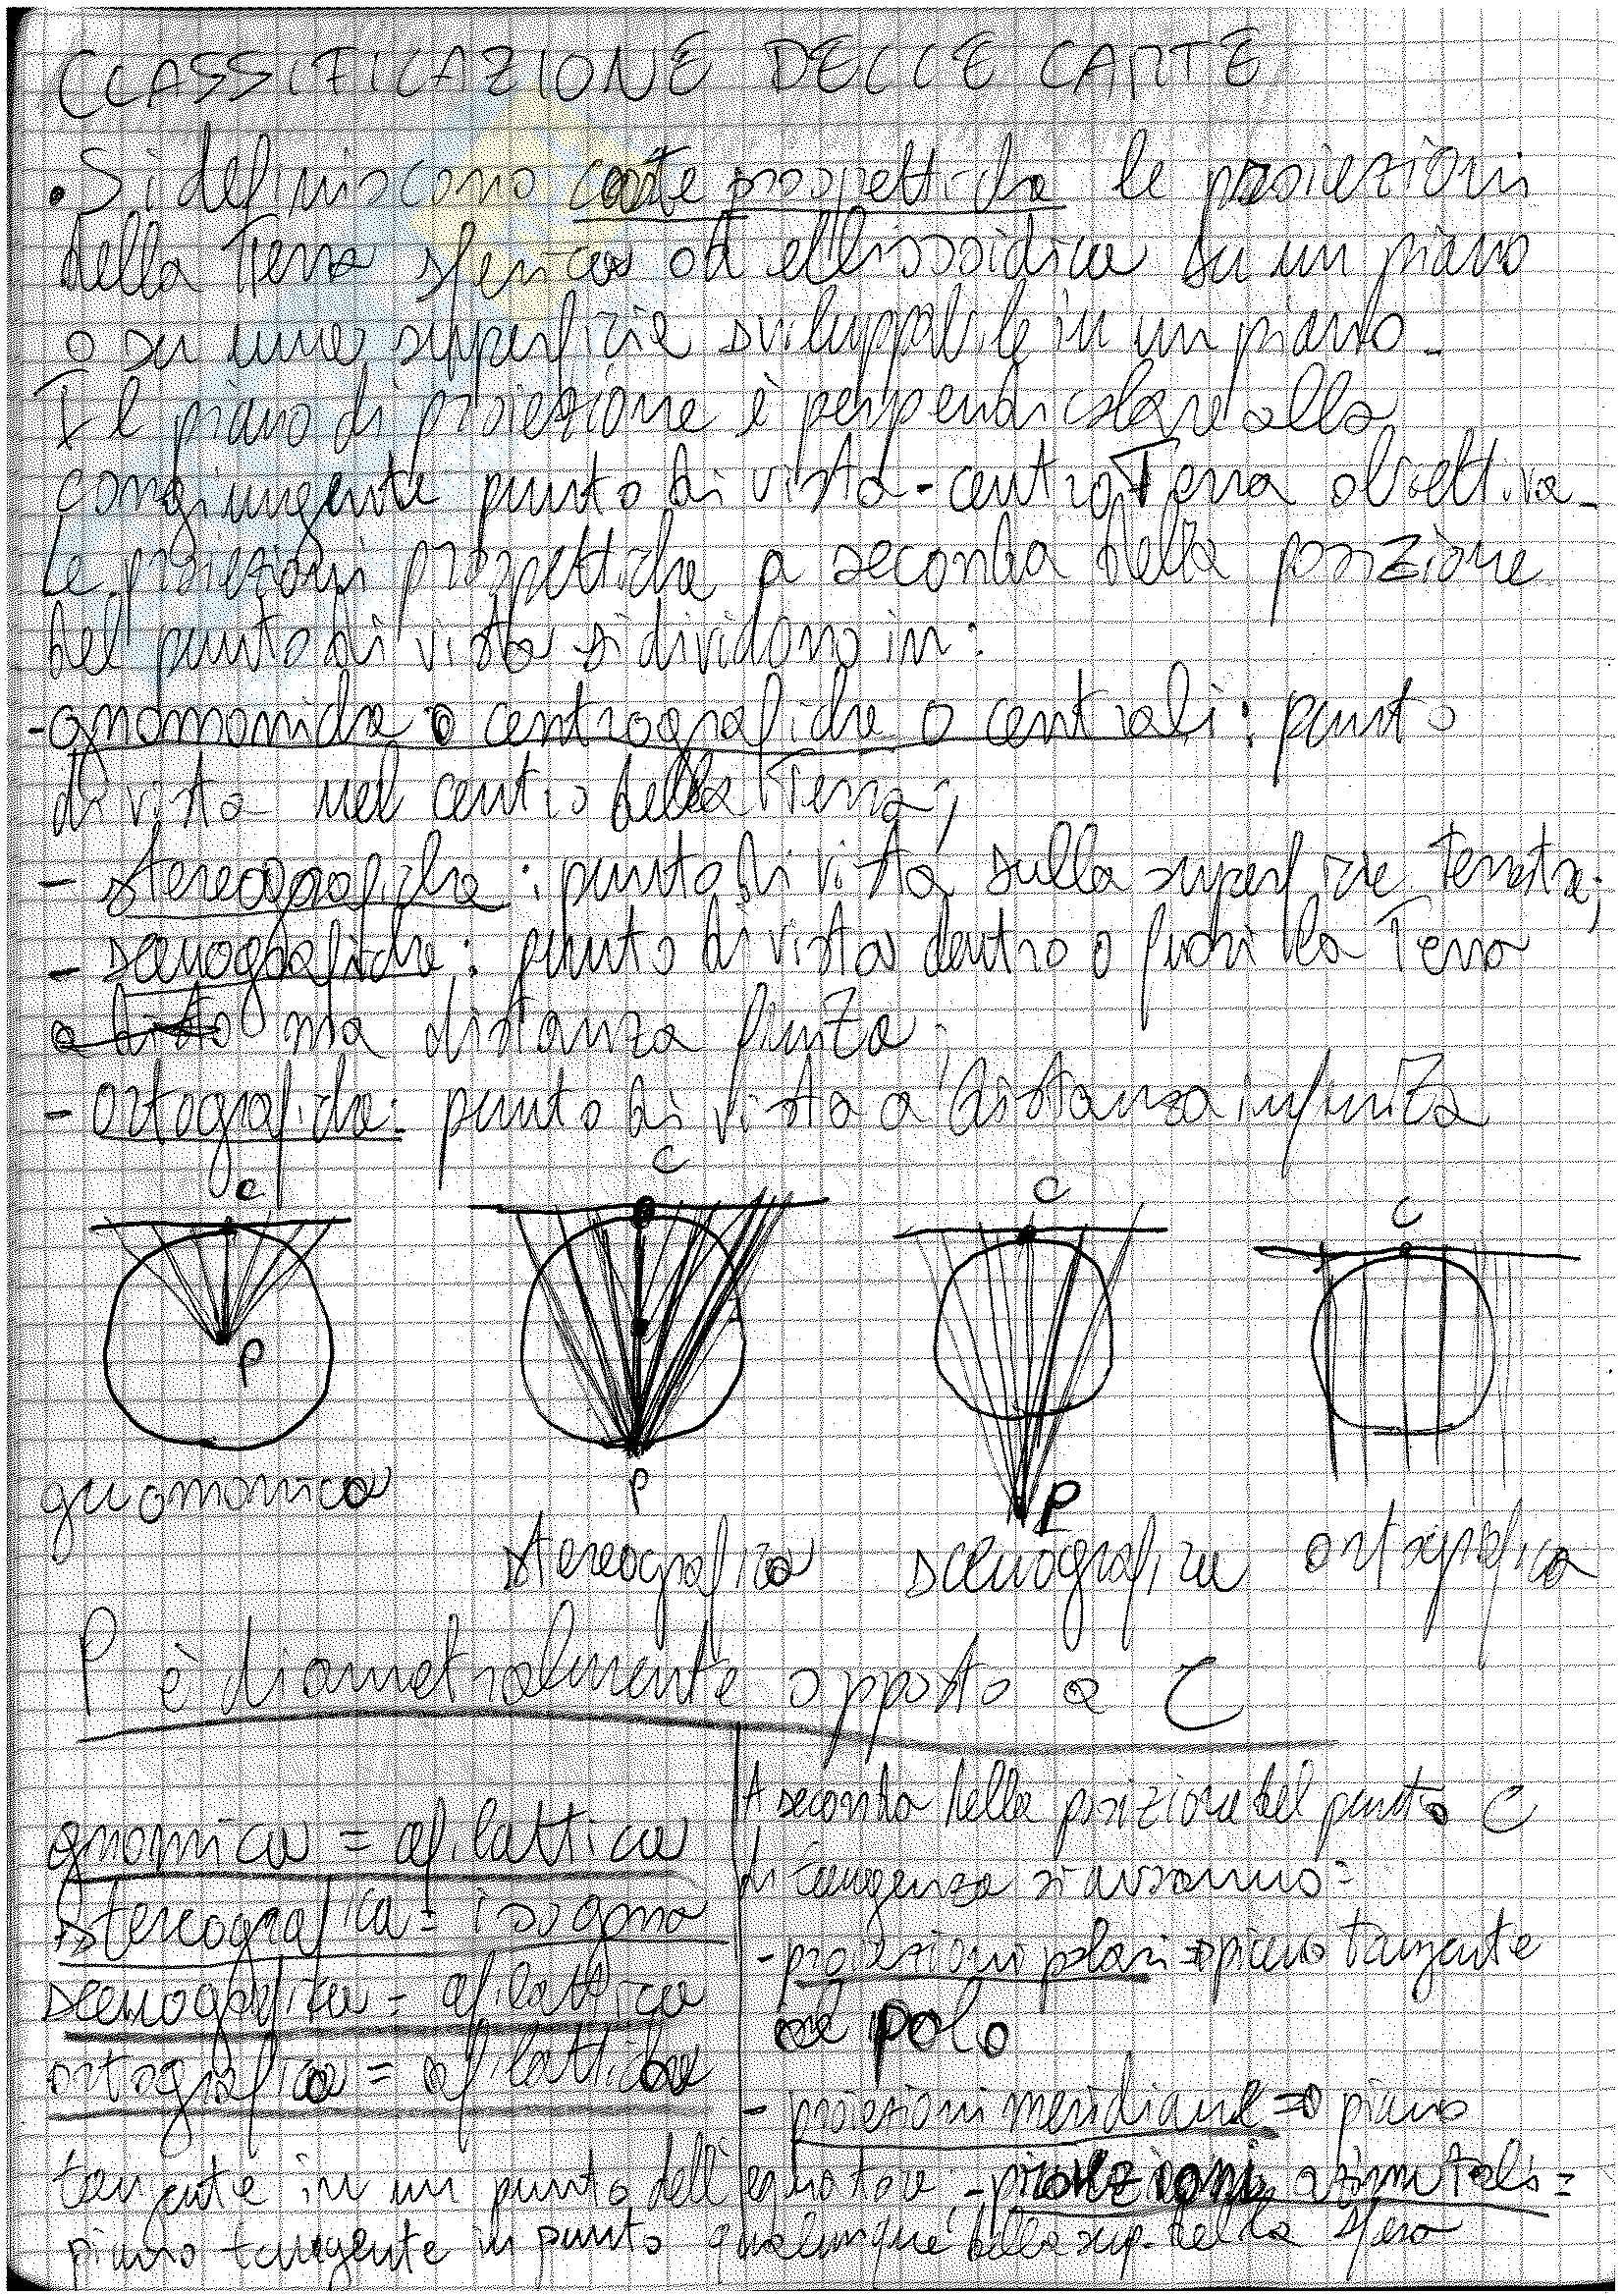 CLASSIFICAZIONE DELLE CARTE
• Si definiscono carte prospettiche le proiezioni
della Terra sferica od ellissoidica su un piano
o su una superficie sviluppabile in un piano.
Il piano di proiezione è perpendicolare alla
congiungente punto di vista-centro Terra obiettiva.
Le proiezioni prospettiche a seconda della posizione
del punto di vista si dividono in:
- gnomoniche o centrografiche o centrali: punto
di vista nel centro della Terra;
- stereografiche: punto di vista sulla superficie terrestre;
- scenografiche: punto di vista dentro o fuori la Terra
ma distanza finita;
- ortografiche: punto di vista a distanza infinita
C C C C
P
P P
gnomonica
stereografica scenografica ortografica
P è diametralmente opposto a C
gnomica = afilattica
stereografica = isogona
scenografica = afilattica
ortografica = afilattica
A seconda della posizione del punto C
di tangenza si avranno:
- proiezioni polari => piano tangente
al polo
- proiezioni meridiane => piano
tangente in un punto dell'equatore; - proiezioni azimutali =
piano tangente in punto qualunque della sup. della sfera